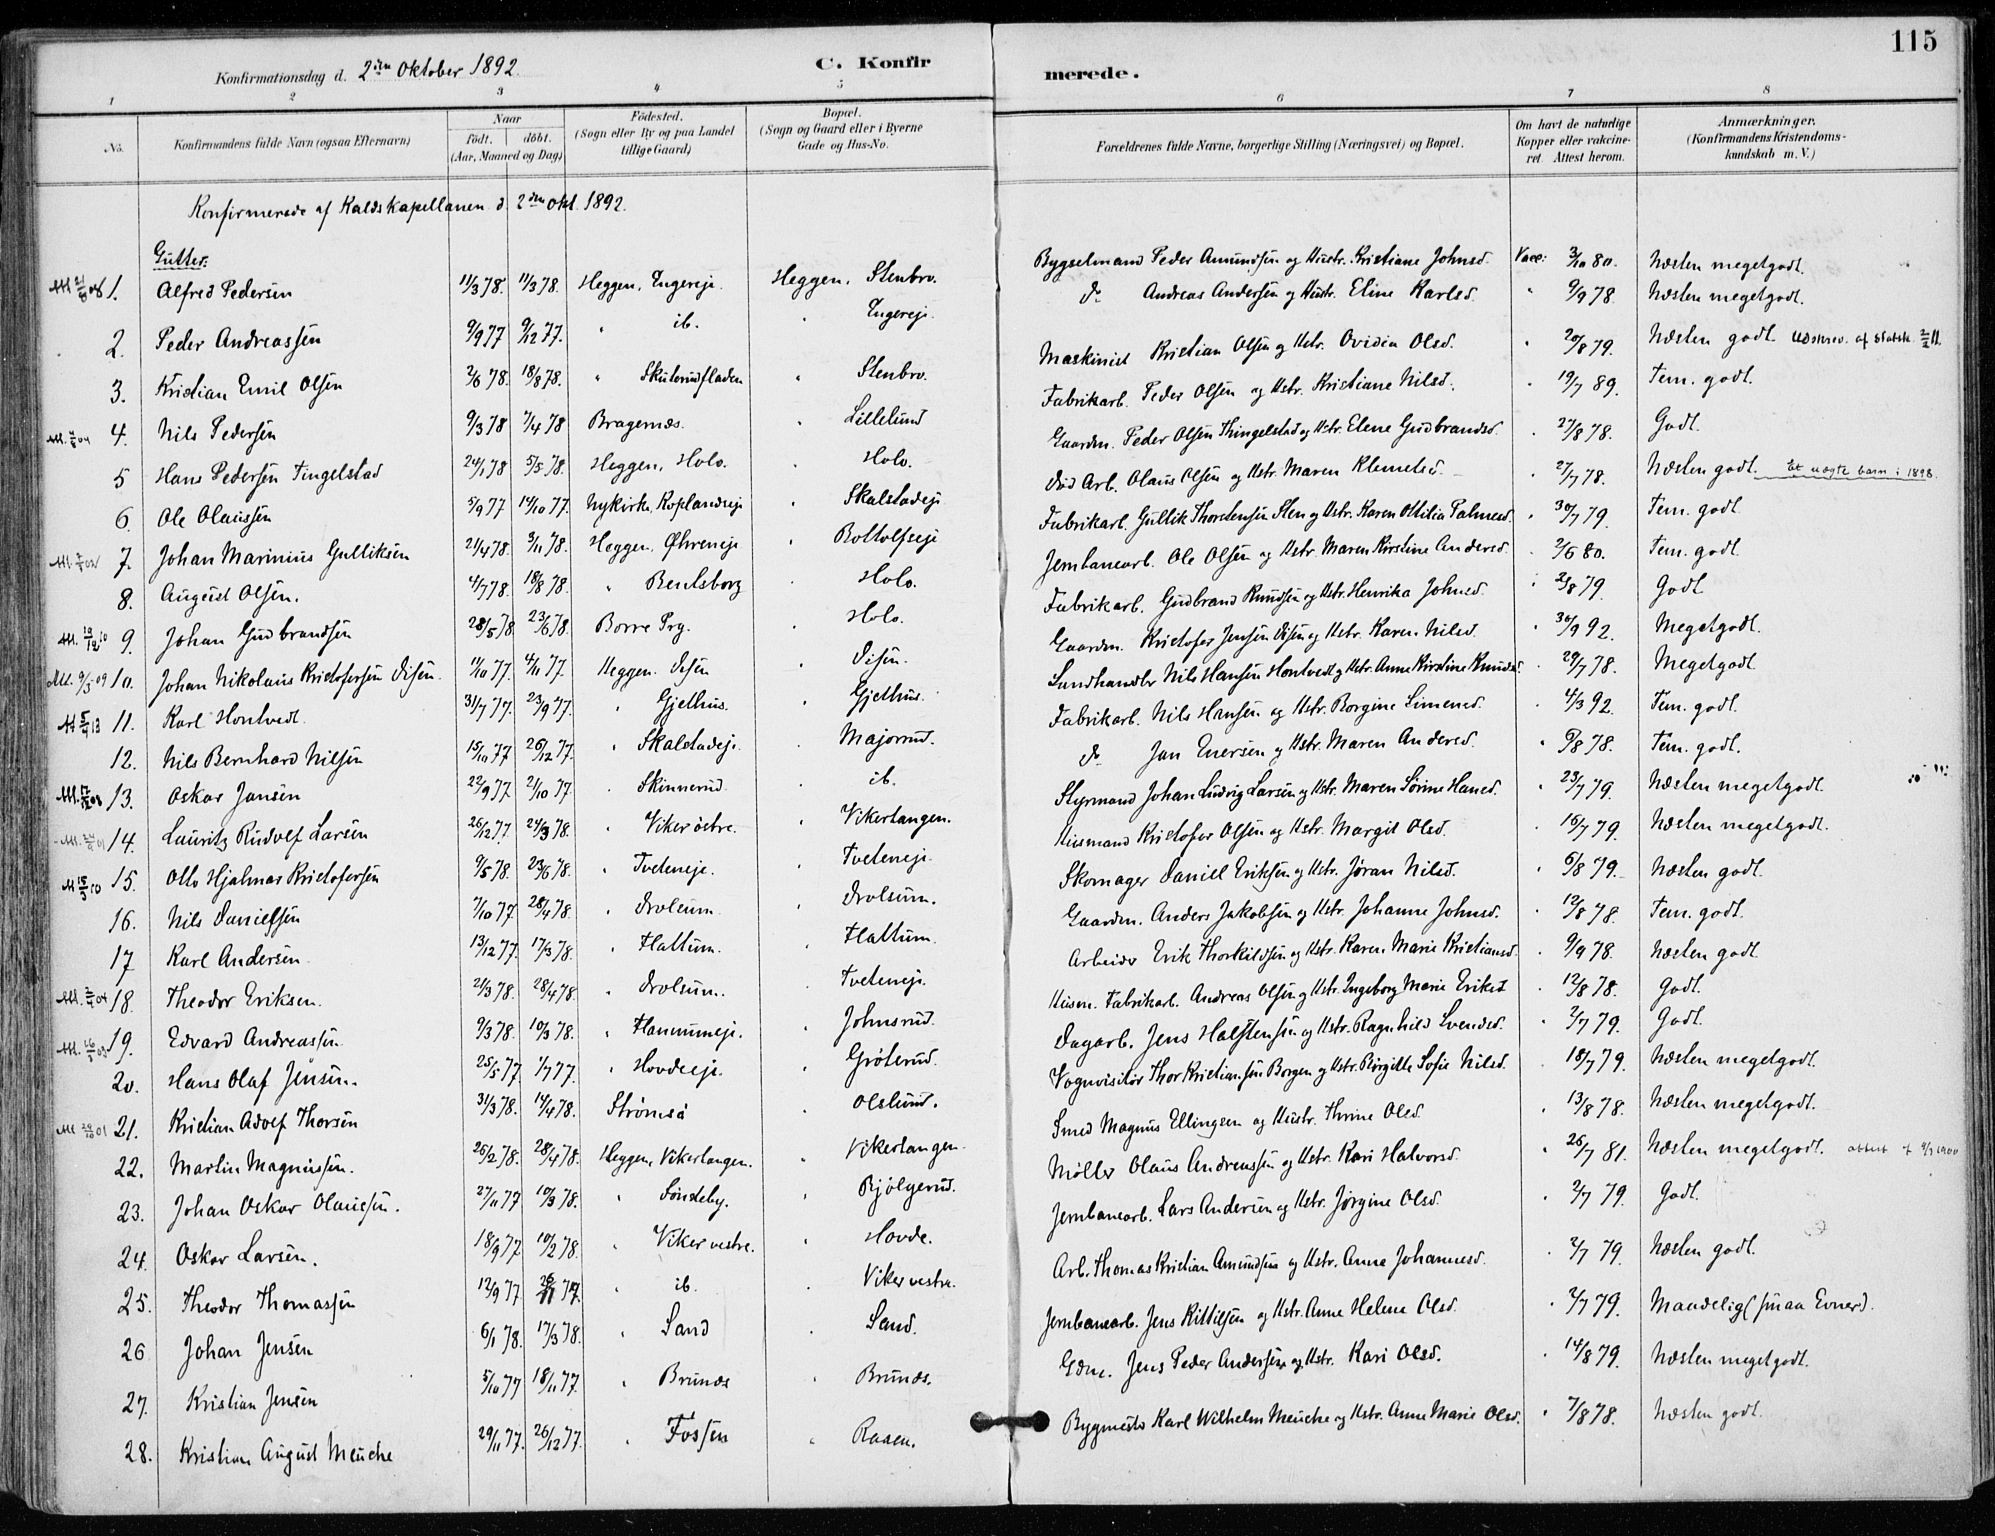 115
Konfirmationsdag d. 2den Oktober 1892.
C. Konfirmerede.
1 2 3 4 5 6 7 8
No.
Konfirmandens fulde Navn (ogsaa Efternavn)
Naar
født. døbt.
(Aar, Maaned og Dag)
Fødested.
(Sogn eller By og paa Landet
tillige Gaard)
Bopæl.
(Sogn og Gaard eller i Byerne
Gade og Hus-No.
Forældrenes fulde Navne, borgerlige Stilling (Næringsvei) og Bopæl.
Om havt de naturlige
Kopper eller vakcine-
ret. Attest herom.
Anmærkninger.
(Konfirmandens Kristendoms-
kundskab m. V.)
Konfirmerede af Kaldskapellanen d. 2den Okt. 1892.
Gutter:
1. Alfred Pedersen 11/3 78. 11/3 78. Heggen, Engereje Heggen, Stenbro. Bygselmand Peder Amundsen og Hustr. Kristiane Johnsd. Vacc: 3/10 80. Næsten megetgodt.
2. Peder Andreassen 9/9 77 9/12 77. " ib. " Engereje do Andreas Andersen og Hustr. Eline Karlsd. " 9/9 78. Næsten megetgodt.
3. Kristian Emil Olsen 2/6 78. 18/8 78. " Skuterudfladen " Stenbro. Maskinist Kristian Olsen og Hstr. Ovidia Olsd. " 20/8 79. Næsten godt. Udskrev. af Statsk. 2/2 11.
4. Nils Pedersen 9/3 78 7/4 78 Bragernæs. " Lillelund Fabrikarb. Peder Olsen og Hstr. Kristiane Nilsd. " 19/7 89. Tem. godt.
5 Hans Pedersen Tingelstad 24/1 78 5/5 78. Heggen, Holo. " Holo. Gaardm. Peder Olsen Thingelstad og Hstr. Elene Gudbrandsd. " 27/8 78. Godt.
6. Ole Olaussen 5/9 77 14/10 77. Nykirke, Koplandseje " Skalstadeje død Arb. Olaus Olsen og Hstr. Maren Klemetsd. " 27/7 78. Næsten godt. Et uægte barn i 1898.
7. Johan Marinius Gulliksen 21/4 78. 3/11 78. Heggen, Øhreneje " Bottolfseje Fabrikarb. Gullik Thorstensen Sten og Hstr. Karen Ottilia Palmesd. " 30/7 79. Tem. godt.
8. August Olsen. 4/7 78. 18/8 78. " Bentsborg " Holo. Jernbanearb. Ole Olsen og Hstr. Maren Kirstine Andersd. " 2/6 80. Tem. godt.
9. Johan Gudbrandsen 28/5 78. 23/6 78. Borre Prg. " Holo. Fabrikarb. Gudbrand Knudsen og Hstr. Henrika Johnsd. " 23/8 79. Godt
10. Johan Nikolaus Kristofersen Disen 11/10 77. 4/11 77. Heggen. Disen " Disen. Gaardm. Kristofer Jensen Disen og Hstr. Karen Nilsd. " 30/9 92. Megetgodt.
11. Karl Hontvedt. 31/7 77. 23/9 77. " Gjethus. " Gjethus. Landhandler Nils Hansen Hontvedt og Hstr. Anne Kirstine Knudsd. " 29/7 78. Megetgodt
12. Nils Bernhard Nilsen 15/10 77 26/12 77. " Skalstadeje. " Majorud. Fabrikarb. Nils Hansen og Hstr. Borgine Simensd. " 4/3 92. Tem. godt.
13. Oskar Jansen 22/9 77 21/10 77. " Skinnerud. " ib. do Jan Enersen og Hstr. Maren Andersd. " 9/8 78. Tem. godt.
14. Lauritz Rudolf Larsen 26/12 77 24/3 78. " Viker østre. " Vikertangen. Styrmand Johan Ludvig Larsen og Hstr. Maren Sørine Hansd. " 23/7 79. Næsten megetgodt.
15. Otto Hjalmar Kristofersen 9/5 78. 23/6 78. " Tveteneje. " Tveteneje. Husmand Kristofer Olsen og Hstr. Margit Olsd. " 16/7 79. Næsten megetgodt.
16. Nils Danielsen 7/10 77. 28/4 78. " Drolsum. " Drolsum. Skomager Daniel Eriksen og Hstr. Jøran Nilsd. " 6/8 79. Næsten godt.
17 Karl Andersen 13/12 77. 17/3 78. " Flattum. " Flattum. Gaardm. Anders Jakobsen og Hstr. Johanne Johnsd. " 12/8 78. Tem. godt.
18. Theodor Eriksen. 21/3 78. 28/4 78. " Drolsum. " Tveteneje. Arbeider Erik Thorkildsen og Hstr. Karen Marie Kristiansd. " 9/9 78. Næsten godt.
19. Edvard Andreassen 9/3 78. 10/3 78. " Flannumeje. " Johnsrud. Husm. Fabrikarb. Andreas Olsen og Hstr. Ingeborg Marie Eriksd " 12/8 78. Godt.
20. Hans Olaf Jensen. 25/5 77. 1/7 77. " Hovdeeje. " Grøterud. Dagarb. Jens Halstensen og Hstr. Ragnhild Svendsd. " 2/7 79. Godt.
21. Kristian Adolf Thorsen 31/3 78. 14/4 78. Strømsø " Olslund. Vognvisitør Thor Kristiansen Borgen og Hstr. Birgitte Sofie Nilsd. " 18/7 79. Næsten megetgodt.
22. Martin Magnussen. 26/2 78. 28/4 78. Heggen, Vikertangen. " Vikertangen. Smed Magnus Ellingsen og Hustr. Thrine Olsd. " 13/8 78. Næsten megetgodt.
23. Johan Oskar Olaussen. 27/11 77 10/3 78. " Søndeby. " Bjølgerud. Møller Olaus Andreassen og Hstr. Kari Halvorsd. " 26/7 81. Næsten megetgodt. attest 1900
24. Oskar Larsen. 18/9 77. 10/2 78. " Viker vestre. " Hovde. Jernbanearb. Lars Andersen og Hstr. Jørgine Olsd. " 2/7 79. Godt.
25. Theodor Thomassen 12/9 77 77. " ib. " Viker vestre. Arb. Thomas Kristian Amundsen og Hstr. Anna Johannesd. " 2/7 79. Næsten godt.
26 Johan Jensen 6/1 78. 17/3 78. " Sand " Sand. Jernbanearb. Jens Kittilsen og Hstr. Anne Helene Olsd. " 2/7 79. Maadelig (smaa Evner).
27. Kristian Jensen 5/10 77 18/11 77. " Brunæs " Brunæs. Gdm. Jens Peder Andersen og Hstr. Kari Olsd. " 14/8 79. Næsten megetgodt.
28. Kristian August Meuche 29/11 77. 26/12 77. " Fossen " Raaen. Bygmester Karl Wilhelm Meuche og Hstr. Anne Marie Olsd. " 7/8 78. Næsten godt.